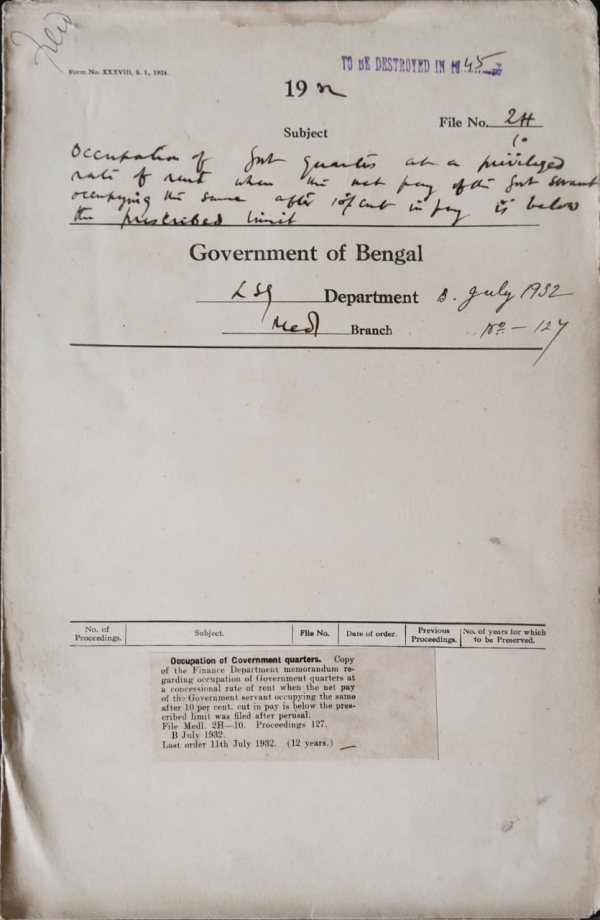 Filed
Form No. XXXVIII, S. I., 1924.
TO BE DESTROYED IN 1945
19 32
File No. 2H
10
Subject
Occupation of Govt quarters at a privileged
rate of rent when the net pay of the Govt servant
occupying the same after 10% cut in pay is below
the prescribed limit
Government of Bengal
LSG Department B. July 1932
Medl Branch No - 127
No. of Proceedings. Subject. File No. Date of order. Previous Proceedings. No. of years for which to be Preserved.
Occupation of Government quarters. Copy
of the Finance Department memorandum re-
garding occupation of Government quarters at
a concessional rate of rent when the net pay
of the Government servant occupying the same
after 10 per cent. cut in pay is below the pres-
cribed limit was filed after perusal.
File Medl. 2H—10. Proceedings 127.
B July 1932.
Last order 11th July 1932. (12 years.)